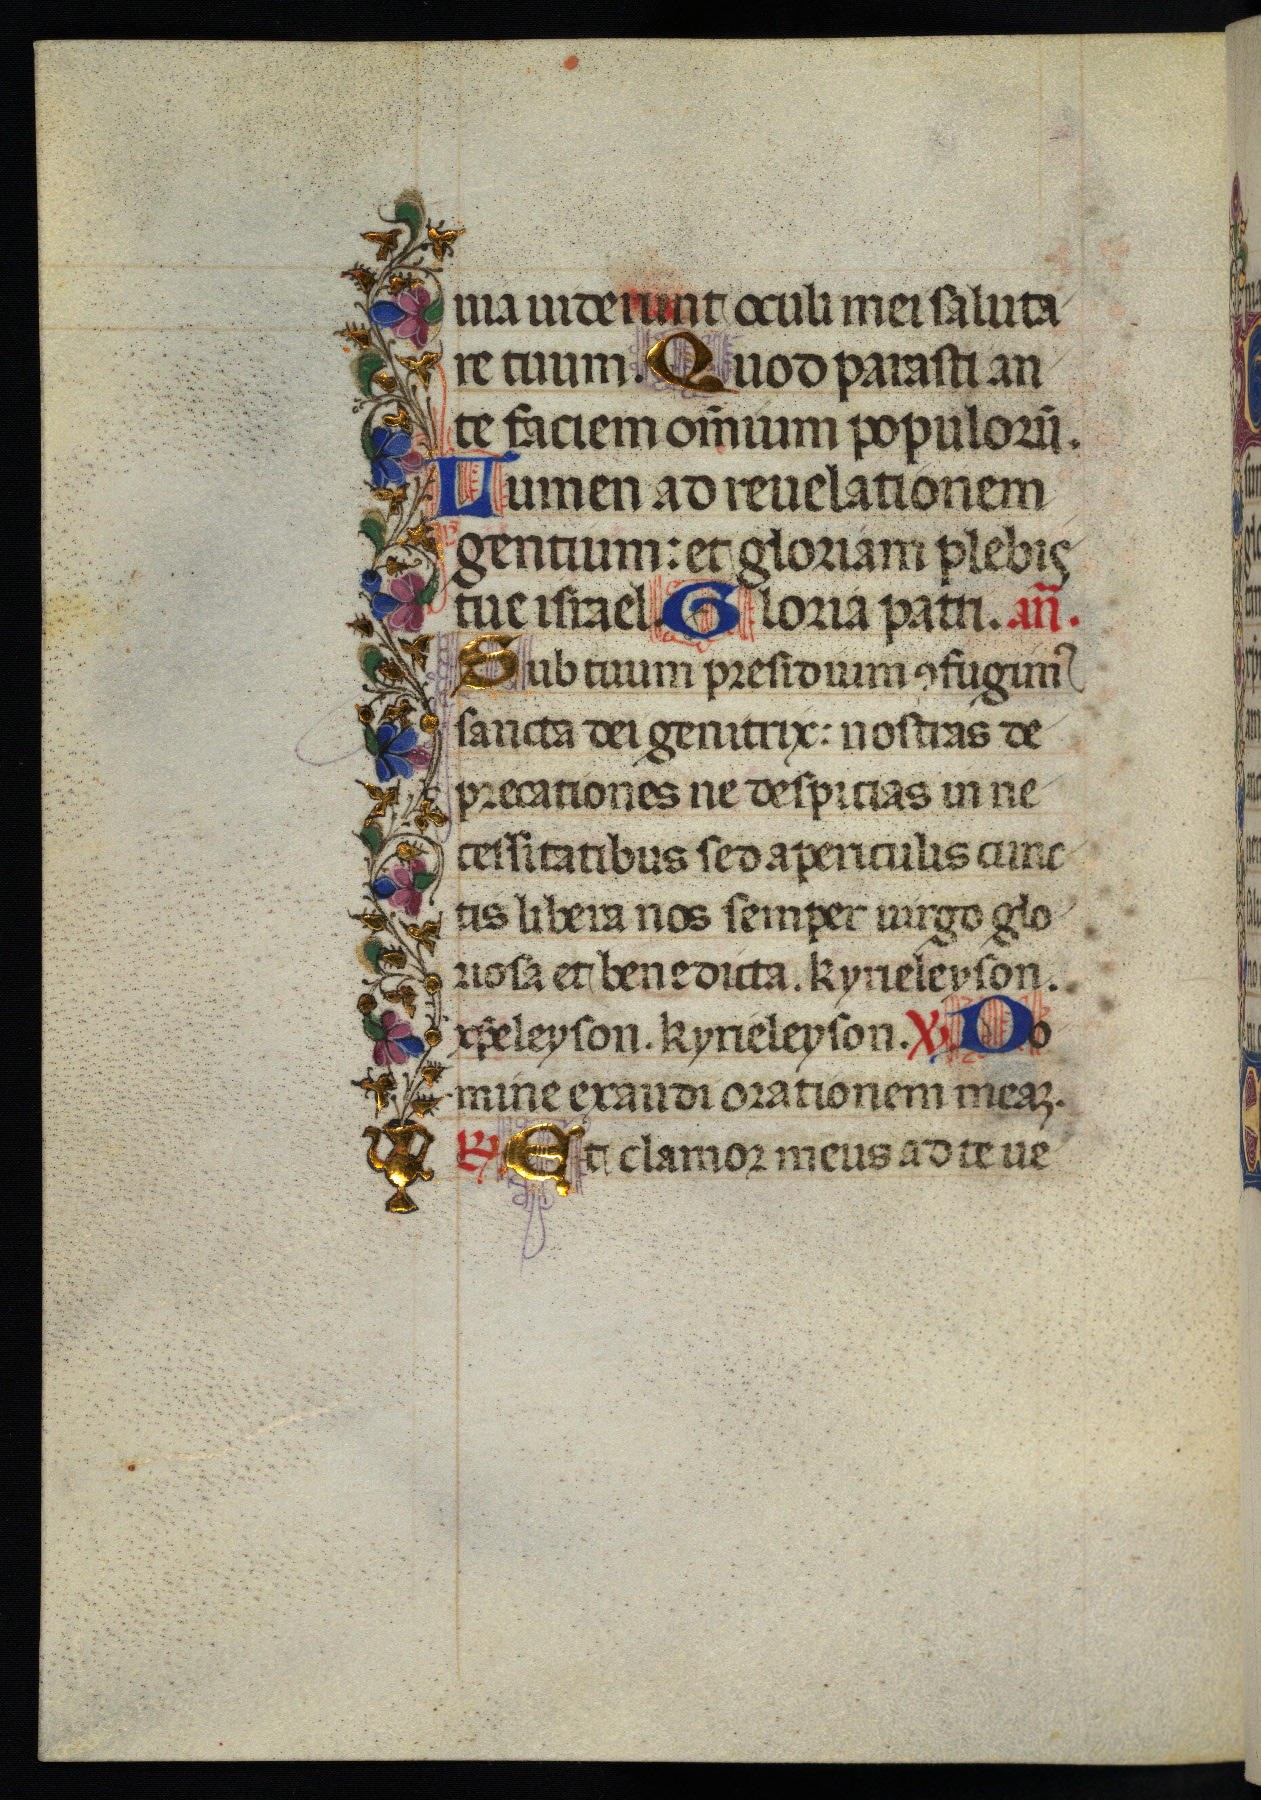 uia uiderunt oculi mei saluta
re tuum. Quod parasti an
te faciem om̄ium populorū.
Lumen ad reuelationem
gentium: et gloriam plebis
tue israel. Gloria patri. an̄.
Sub tuum presidium ꝯfugimꝰ
sancta dei genitrix: nostras de
precationes ne despicias in ne
cessitatibus sed a periculis cunc
tis libera nos semper uirgo glo
riosa et benedicta. kyrieleyson.
xp̄eleyson. kyrieleyson. ℣. Do
mine exaudi orationem meaꝫ.
℟. Et clamor meus ad te ue